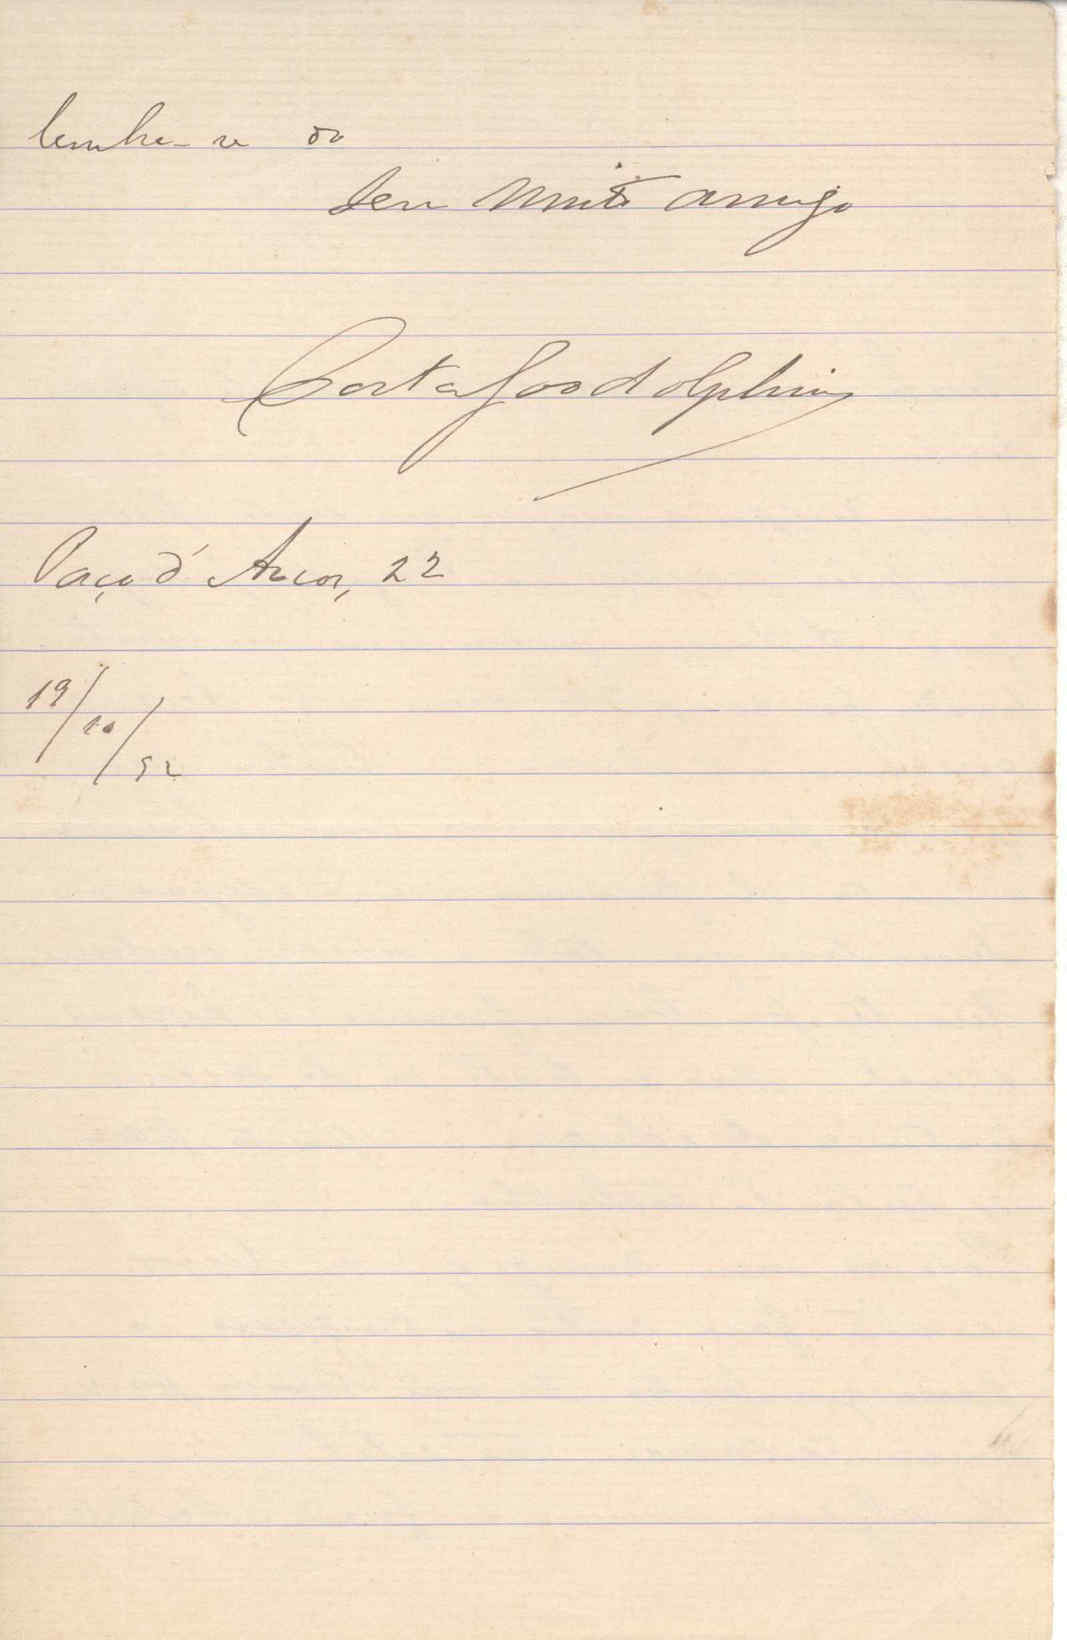 lembre-se do
Seu Muito amigo
Costa Goodolphim
Paço d'Arcos, 22
19/10/92